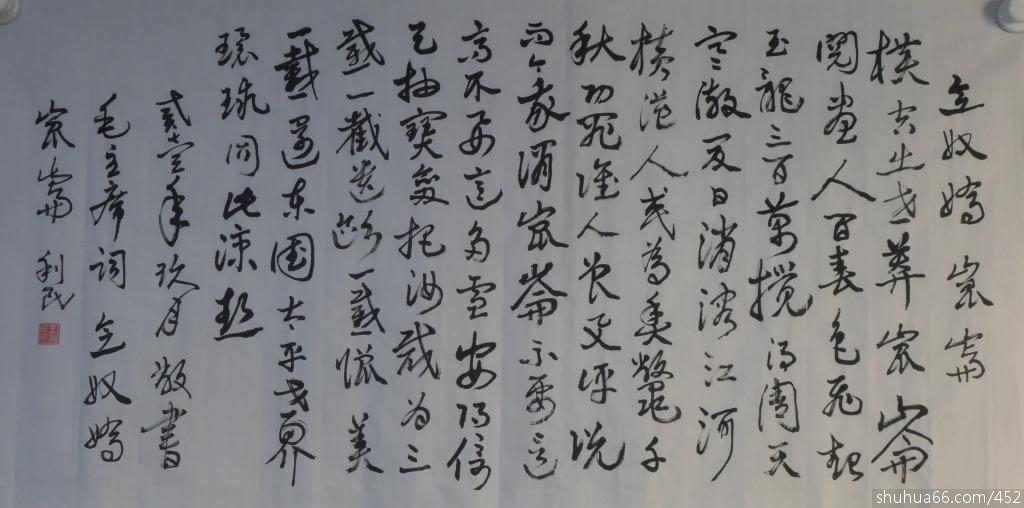 念奴嬌 崑崙
橫空出世莽崑崙
閱盡人間春色飛起
玉龍三百萬攪得周天
寒徹夏日消溶江河
橫溢人或為魚鱉千
秋功罪誰人曾與評說
而今我謂崑崙不要這
高不要這多雪安得倚
天抽寶劍把汝裁為三
截一截遺歐一截贈美
一截還東國太平世界
環球同此涼熱
年玖月敬書
毛主席詞 念奴嬌
崑崙 利民
shuhua66.com/452